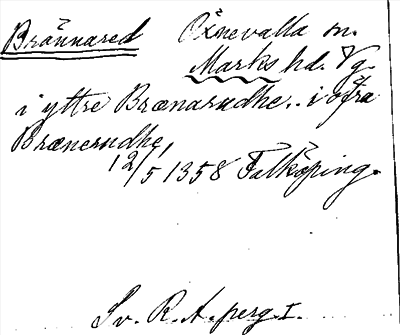 Brännared Öxnevalla sn.
Marks hd. Vg.
i yttre Brænarudhe.. i öfra
Brænerudhe
12/5 1358 Falköping.
Sv. R. A. perg I.